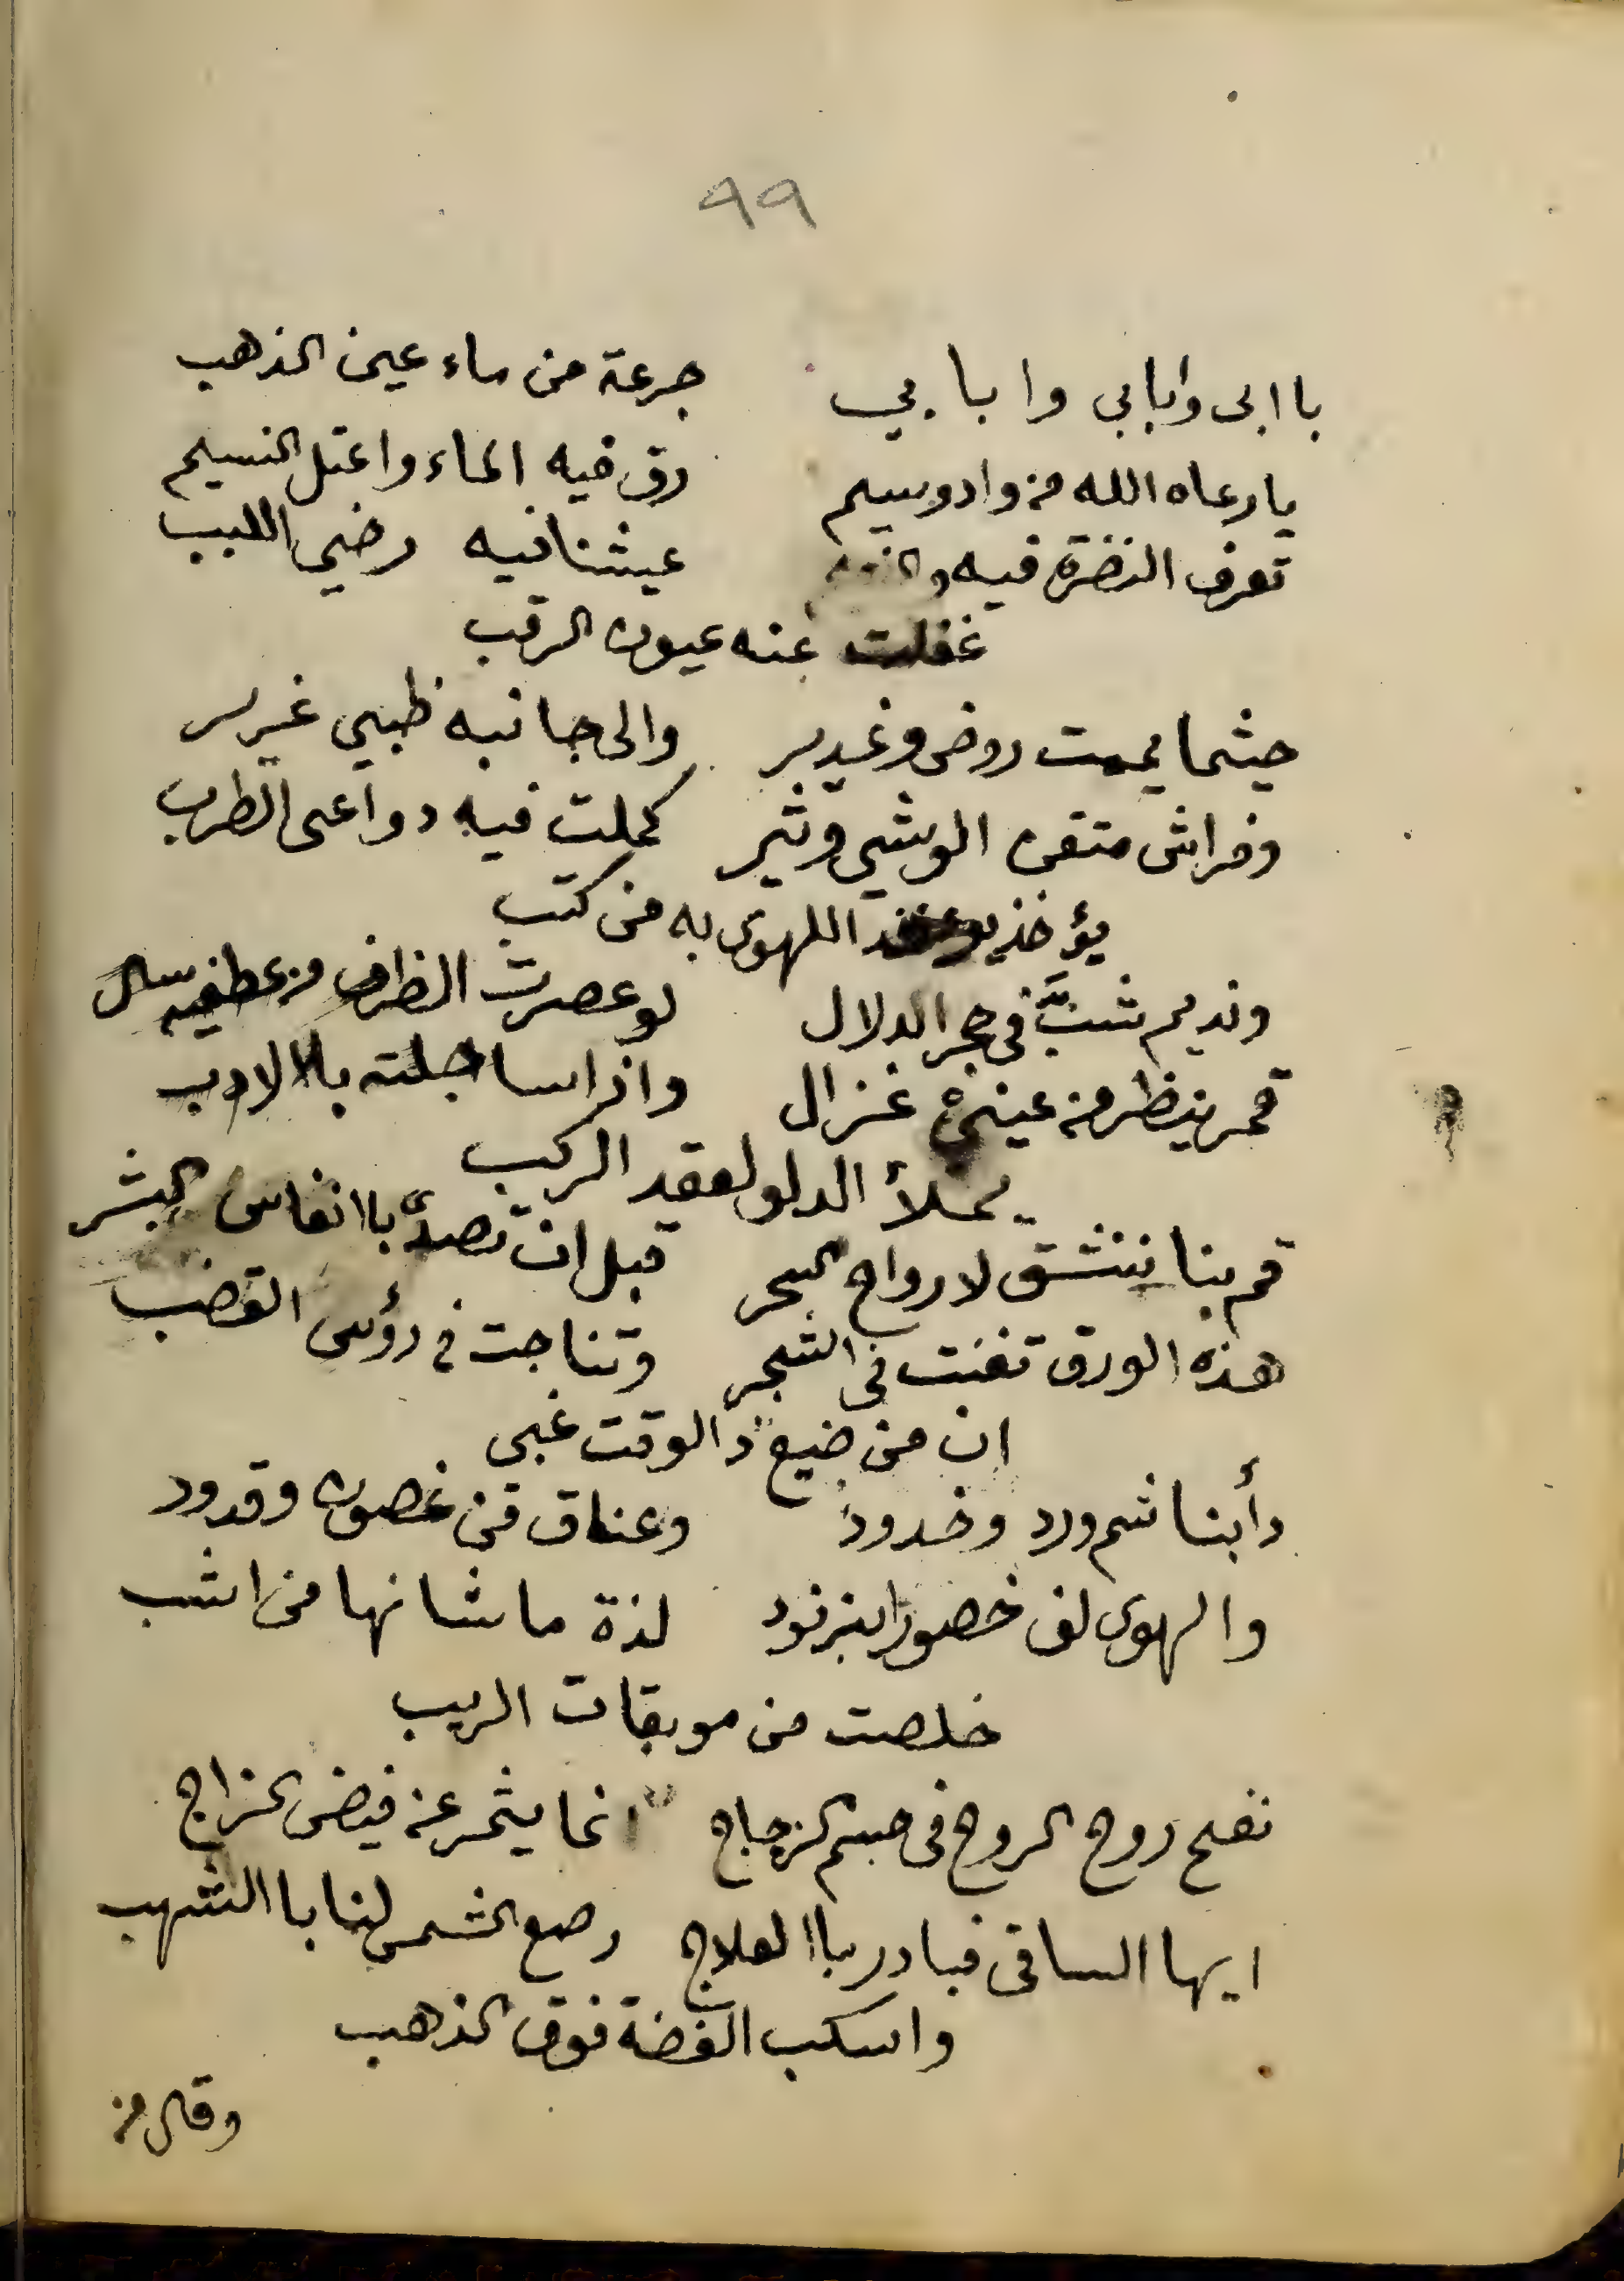 ٩٩
با ابى وبأبي وا با بي جرعة من ماء عين الذهب
يا رعاه الله من واد وسيم رق فيه الماء واعتل النسيم
تعرف النضرة فيه عيشنا فيه رضي اللبب
غفلت عنه عيون الرقب
حيثما يممت روض وغدير والى جانبه ظبي غرير
وفراش متقن الوشي وثير كملت فيه دواعى الطرب
يؤخذ اللهوى به من كثب
ونديم شبَّ في حجر الدلال لو عصرت الظرف من عطفيه سال
قمر ينظر من عيني غزال واذا ساجلته بالادب
يملأ الدلو لعقد الركب
قم بنا ننشق لارواح السحر قبل ان تصدَّ باانفاس البشر
هذه الورق تغنت فى الشجر وتناجت في رؤس القضب
ان من ضيع ذ الوقت غبي
دأبنا شم ورد وخدود وعناق من غصون وقدود
والهوى لف خصورا بزنود لذة ما شانها من اشب
خلصت من موبقات الريب
نفخ روح الروح فى جسم الزجاج انما يثمر عن فيض المزاج
ايها الساقى فبادر باالعلاج رصع الشمس لنا باالشهب
واسكب الفضة فوق الذهب
وقال من